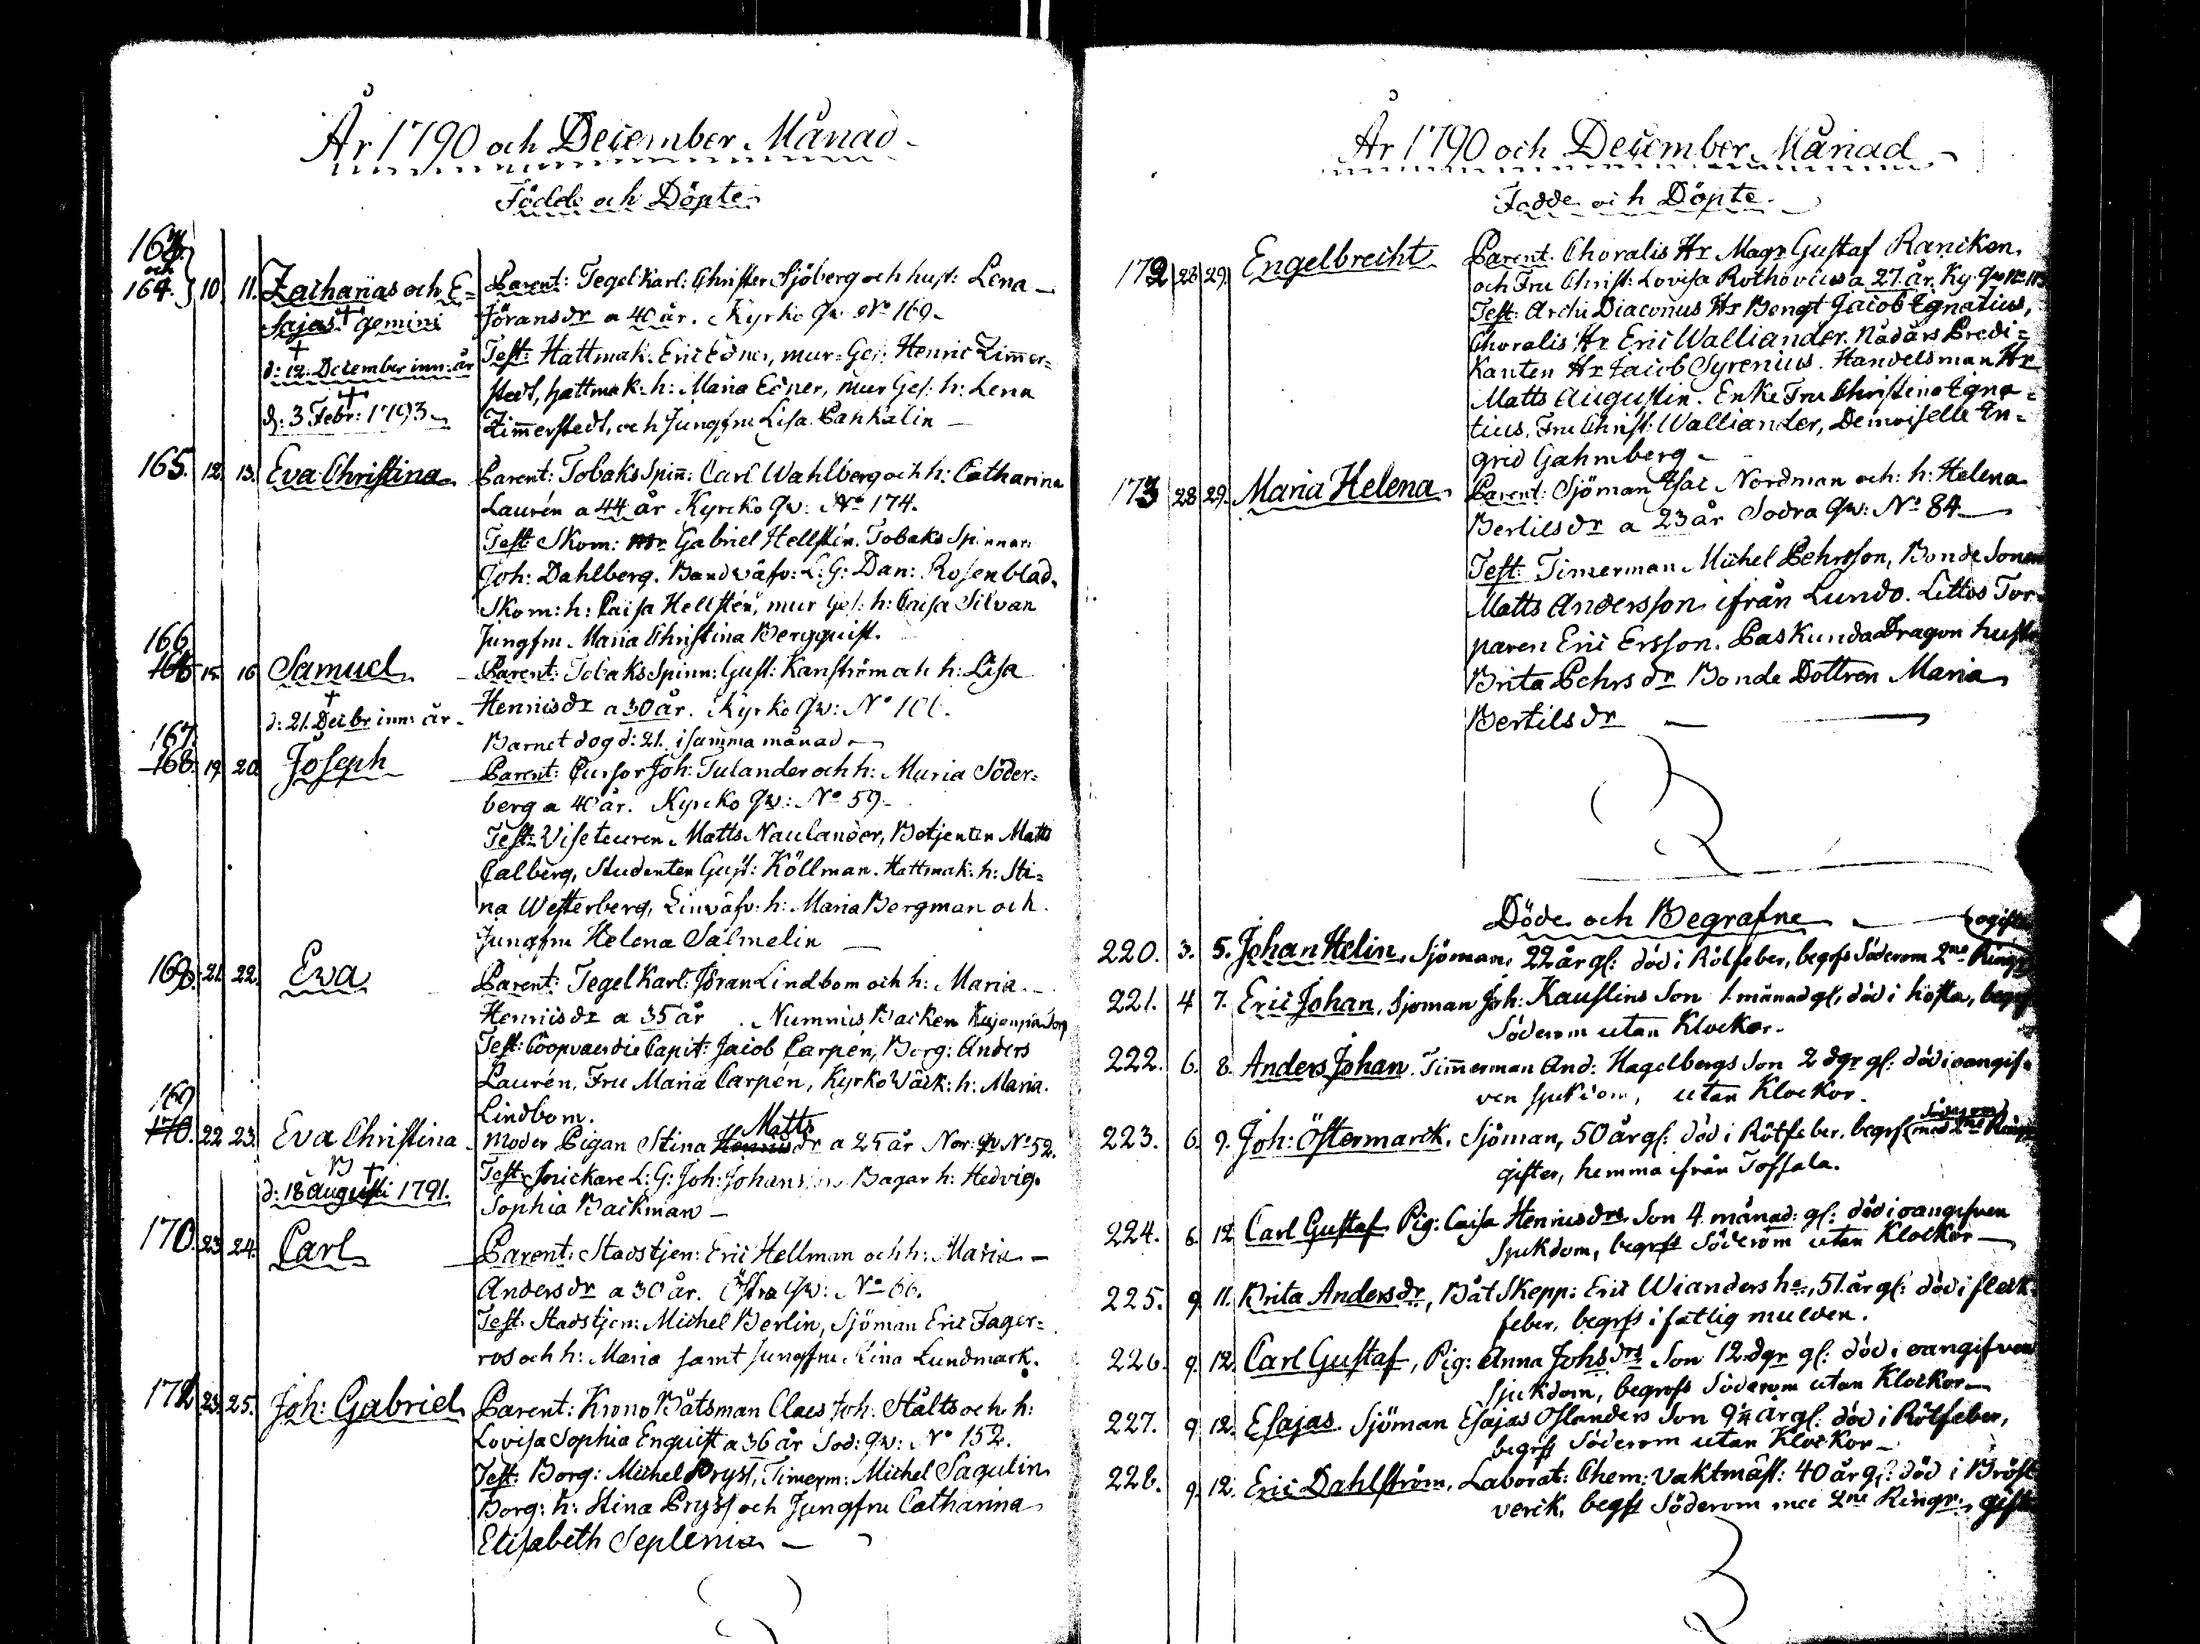 År 1790 och December Månad
Födde och Döpte
163.
och
164. 10 11. Zacharias och E=
sajas gemini
d: 12. December inn: år
d: 3 Febr: 1793
Parent: Tegelkarl: Christer Sjöberg och hust: Lena
Jöransdr a 40 år. Kyrko Qw No 169
Test: Hattmak. Eric Edner, mur=Ges: Henric Zimmer=
stedt, hattmak: h: Maria Edner, mur Ges: h: Lena
Zimmerstedt, och Jungfru Lisa Pahkalin
165. 12. 13. Eva Christina
Parent: Tobaks Spin: Carl Wahlberg och h: Catharina
Laurén a 44 år Kyrcko Qw: No 174.
Test: Skom: Mr Gabriel Hellstén. Tobaks Spinnar:
Joh: Dahlberg. Bandväfv: L: G: Dan: Rosenblad.
Skom: h: Caisa Hellstén, mur Ges: h: Caisa Silvan
Jungfru Maria Christina Bergquist.
166
15. 16 Samuel
d: 21. Decbr inn: år
Parent: Tobaks Spinn: Gust: Kanström och h: Lisa
Henricsdr a 30 år. Kyrko Qw: No
Barnet dog d: 21. i samma månad
167.
168. 19. 20. Joseph
Parent: Cursor Joh: Tulander och h: Maria Söder=
berg a 40 år. Kyrcko Qw: No 59
Test: Visiteuren Matts Naulander, Betjenten Matts
Calberg, Studenten Gust: Köllman. Hattmak: h: Sti=
na Westerberg, Linväfv: h: Maria Bergman och
Jungfru Helena Salmelin
21. 22. Eva
Parent: Tegelkarl: Jöran Lindbom och h: Maria
Henricsdr a 35 år Nummis Backen
Test: Coopvaerdie Capit: Jacob Carpén, Borg: Anders
Laurén, Fru Maria Carpén, Kyrko Väck: h: Maria
Lindbom.
169
170. 22 23. Eva Christina
d: 18 Augusti 1791.
Matts
Moder Pigan Stina Henricsdr a 25 år Nor: qw No 52.
Test: Snickare L: G: Joh: Johansson Bagar h: Hedvig
Sophia Backman
170. 23. 24. Carl
Parent: Stadstjen: Eric Hellman och h: Maria
Andersdr a 30 år. Östra Qw: No 66.
Test: Stadstjen: Michel Berlin, Sjöman Eric Fager=
ros och h: Maria samt Jungfru Stina Lundmark.
23. 25. Joh: Gabriel
Parent: Krono Båtsman Claes Joh: Stålts och h:
Lovisa Sophia Enquist a 36 år Söd: qw: No 152.
Test: Borg: Michel Pryss, Timerm: Michel Sagulin
Borg: h: Stina Pryss och Jungfru Catharina
Elisabeth Seplenia
År 1790 och December Månad
Födde och Döpte
172 28 29. Engelbrecht
Parent: Choralis Hr Magr Gustaf Rancken
och Fru Christ: Lovisa Rothovius a 27 år. Ky: Qw No
Test: Archi Diaconus Hr Bengt Jacob Ignatius,
Choralis Hr Eric Walliander. Nådårs Predi=
kanten Hr Jacob Syrenius. Handelsman Hr
Matts Augustin. Enke Fru Christina Igna=
tius, Fru Christ: Walliander, Demoiselle In=
grid Gahmberg
173 28 29. Maria Helena
Parent: Sjöman Isac Nordman och: h: Helena
Bertilsdr a 23 år Södra Qw: No 84
Test: Timerman Michel Pehrsson, Bonde Sonen
Matts Andersson ifrån Lundo. Littos Tor=
paren Eric Ersson. Paskunda Dragon hustr
Brita Pehrsdr Bonde Dottren Maria
Bertilsdr
Döde och Begrafne
ogift
220. 3. 5. Johan Helin, Sjöman, 22 år gl: död i Rötfeber, begrfs Söderom 2ne Ringr
221. 4 7. Eric Johan, Sjöman Joh: Kauslins Son 1. månad gl, död i hosta, begrf
Söderom utan Klockor.
222. 6. 8. Anders Johan. Timmerman And: Hagelbergs Son 2 dgr gl: död i oangif=
ven sjukdom, utan Klockor.
223. 6. 9. Joh: Östermarck, Sjöman, 50 år gl: död i Rötfeber, begrfs Söderom med 2ne Ringr
gifter, hemma ifrån Töffsala.
224. 6. 12. Carl Gustaf Pig: Caisa Henricsdrs Son 4 månad: gl: död i oangifven
Sjukdom, begrfst Söderom utan Klockor
225. 9. 11. Brita Andersdr, Båt Skepp: Eric Wianders ha, 51. år gl: död i fleck=
feber, begrfs i fattig mulden.
226. 9. 12. Carl Gustaf, Pig: Anna Johsdrs Son 12 dgr gl: död i oangifven
Sjukdom, begrofs Söderom utan Klockor
227. 9 12. Esajas. Sjöman Esajas Oslanders Son 9 1/4 år gl: död i Rötfeber,
begrfst Söderom utan Klockor
228. 9. 12. Eric Dahlström, Laborat: Chem: Vaktmäst: 40 år gl: död i Bröst
verck, begfst Söderom med 2ne Ringr. gift